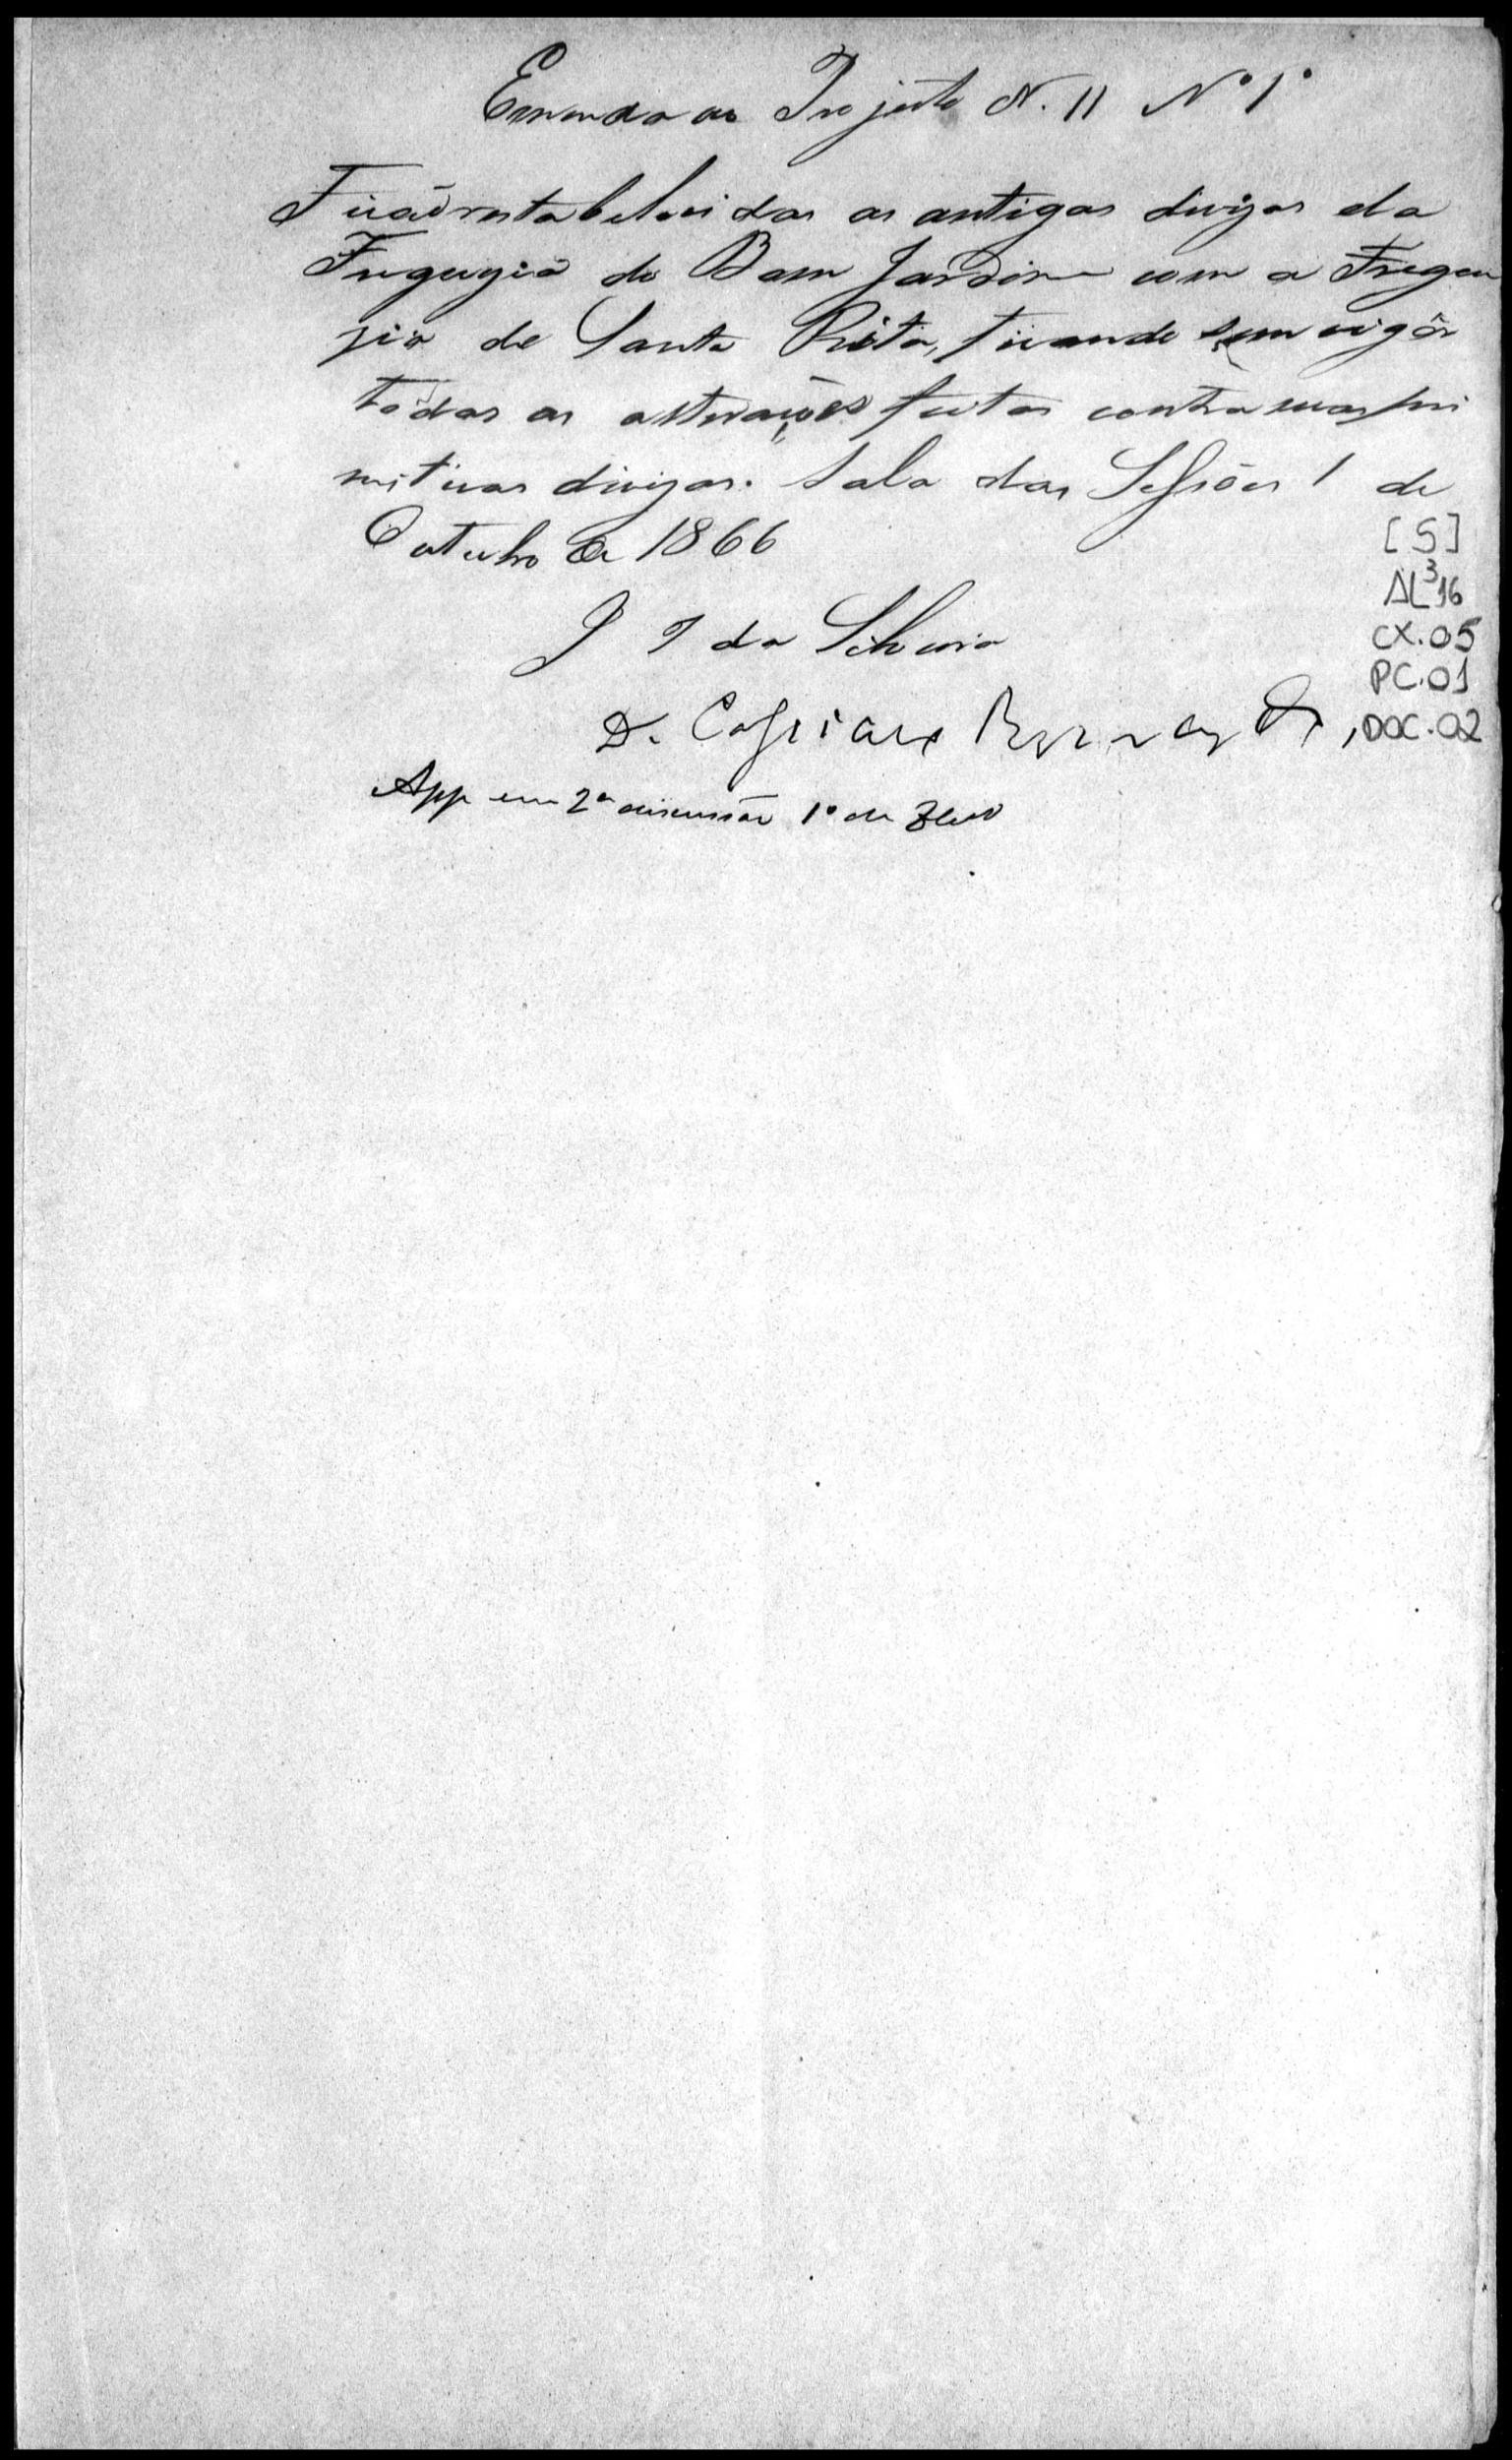 Emenda ao Projecto N. 11 Nº 1º
Ficaõ restabelecidas as antigas divizas da
Freguezia do Bom Jardim com a Fregue
zia de Santa Rita, ficando sem vigôr
todas as alterações feitas contra suas pri
mitivas divizas. Sala das Sessões 1 de
Outubro de 1866
J J da Silveira
Dr. Cassiano
App em 2ª discussão 1º de 8bro
[S]
AL³16
CX.05
PC.01
,DOC.02